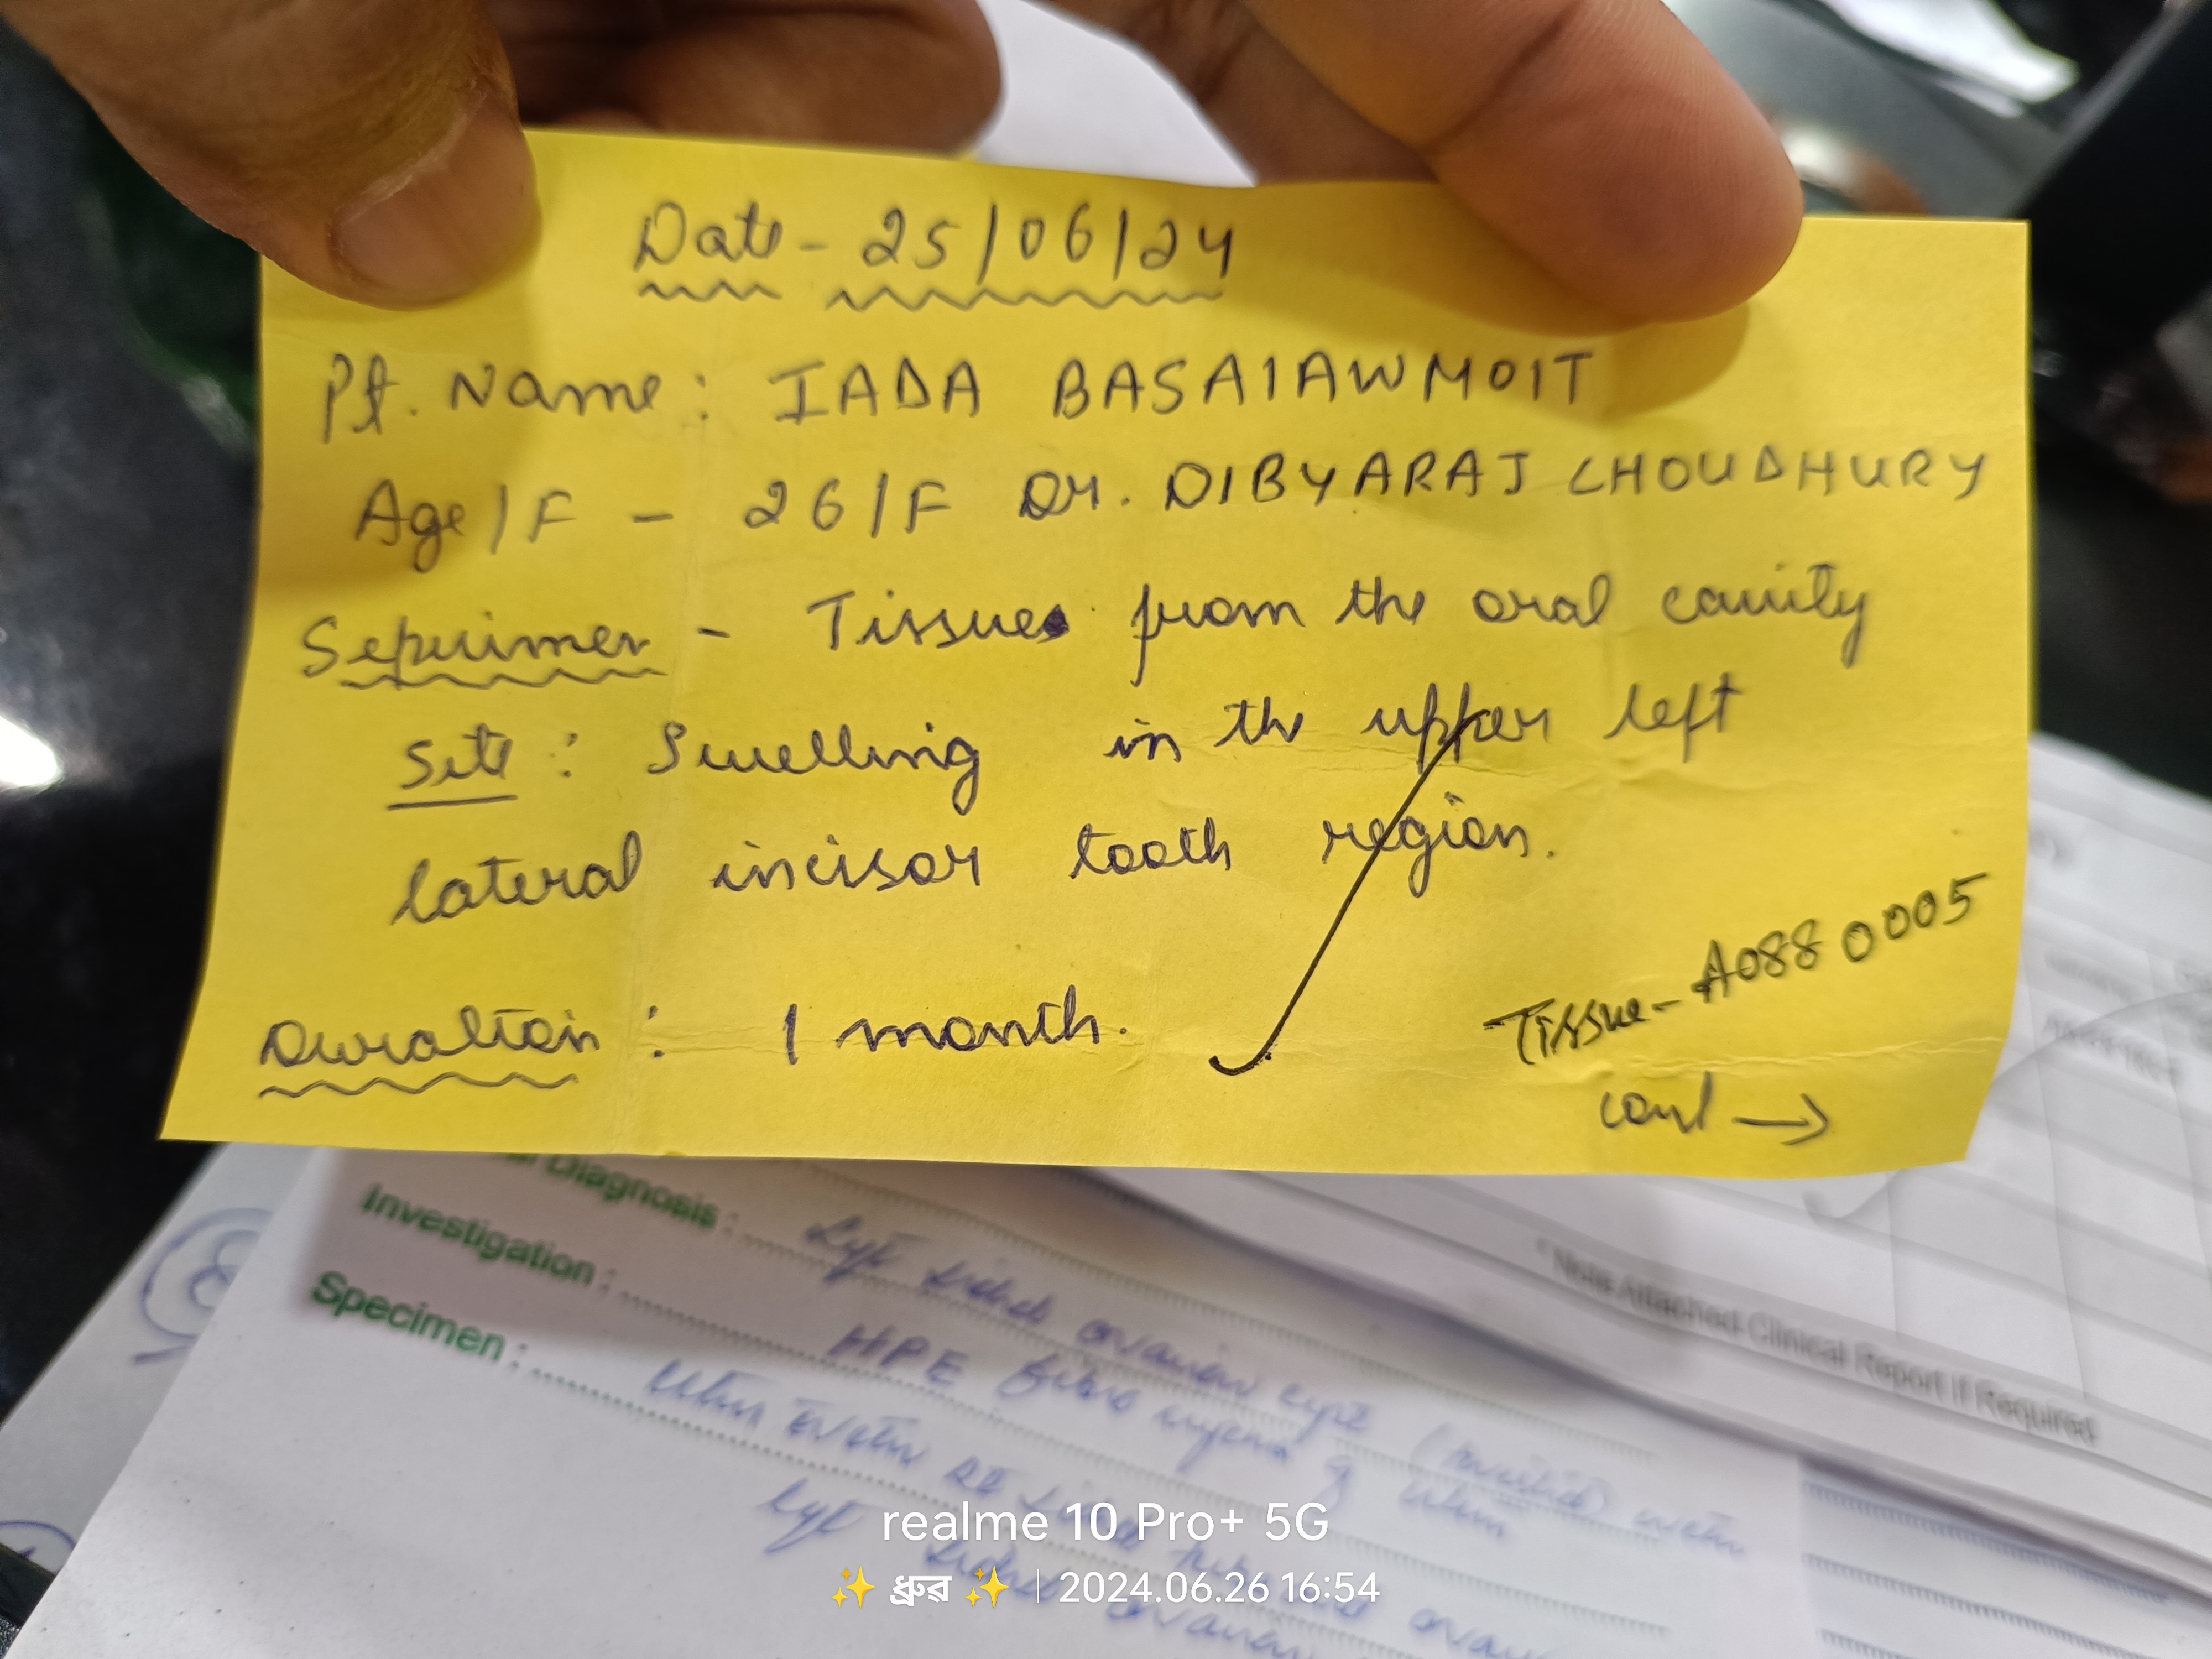 Date - 25/06/24
Pt. Name : IADA BASAIAWMOIT
Age/F - 26/F Dr. DIBYARAJ CHOUDHURY
Sepcimen - Tissues from the oral cavity
Site : Swelling in the upper left
lateral incisor tooth region.
Duration : 1 month.
Tissue - A0880005
cont →
Diagnosis : ovarian cyst
Investigation : HPE
Specimen :
* Note Attached Clinical Report If Required
realme 10 Pro+ 5G
✨ ধ্ৰুৱ ✨ | 2024.06.26 16:54